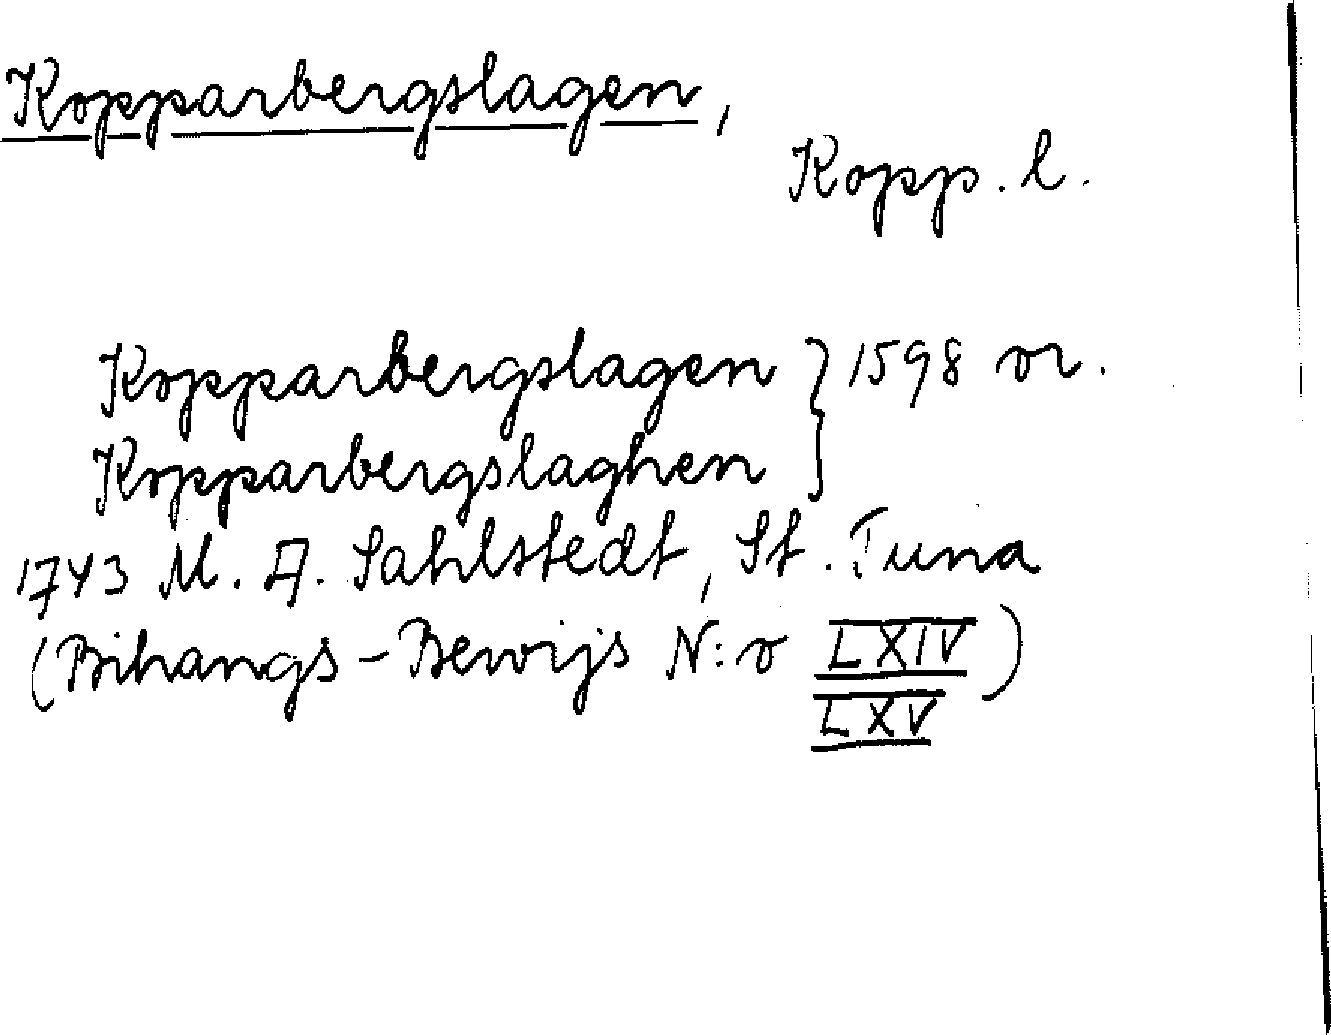 Kopparbergslagen,
Kopp. l.
Kopparbergslagen } 1598 or.
Kopparbergslaghen
1743 M. A. Sahlstedt, St. Tuna
(Bihangs-Bewijs N:o LXIV)
LXV